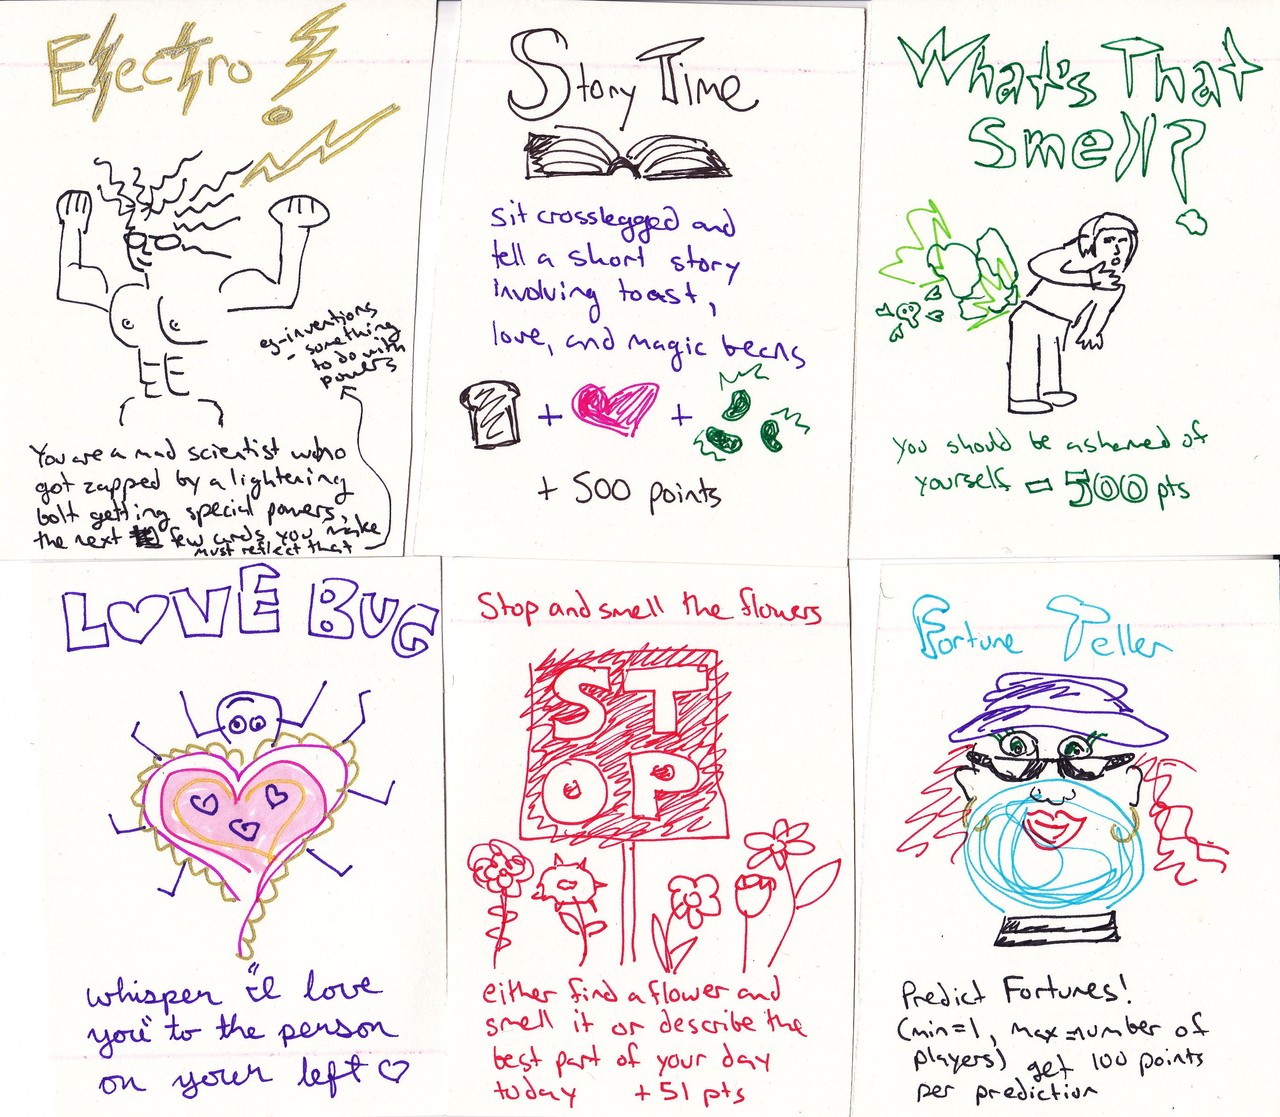 Electro!
eg-inventions
- something
to do with
powers
You are a mad scientist who
got zapped by a lightening
bolt getting special powers,
the next few cards you make
must reflect that
Story Time
sit crosslegged and
tell a short story
involving toast,
love, and magic beans
+ +
+ 500 points
What's That
Smell?
you should be ashamed of
yourself - 500 pts
LOVE BUG
whisper "I love
you" to the person
on your left ♡
Stop and smell the flowers
ST
OP
either find a flower and
smell it or describe the
best part of your day
today +51 pts
Fortune Teller
Predict Fortunes!
(min=1, max=number of
players) get 100 points
per prediction